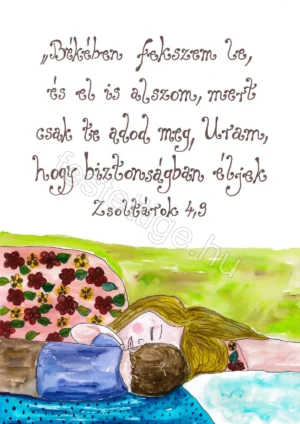 „Békében fekszem le,
és el is alszom, mert
csak te adod meg, Uram,
hogy biztonságban éljek
Zsoltárok 4,9
festettige.hu